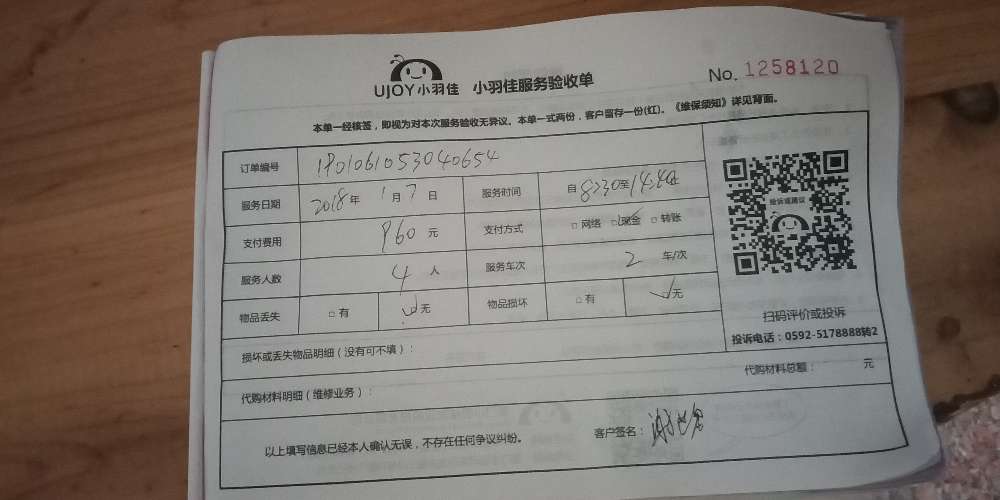 UJOY小羽佳 小羽佳服务验收单 No. 1258120
本单一经核签，即视为对本次服务验收无异议。本单一式两份，客户留存一份(红)。《维保须知》详见背面。
订单编号 1801061053040654
服务日期 2018年 1月 7日 服务时间 自 8:30至14:40止
支付费用 960 元 支付方式 □ 网络 □现金 □ 转账
服务人数 4 人 服务车次 2 车/次
物品丢失 □ 有 无 物品损坏 □ 有 无
投诉或建议
扫码评价或投诉
投诉电话：0592-5178888转2
损坏或丢失物品明细（没有可不填）：
代购材料明细（维修业务）： 代购材料总额： 元
以上填写信息已经本人确认无误，不存在任何争议纠纷。 客户签名：